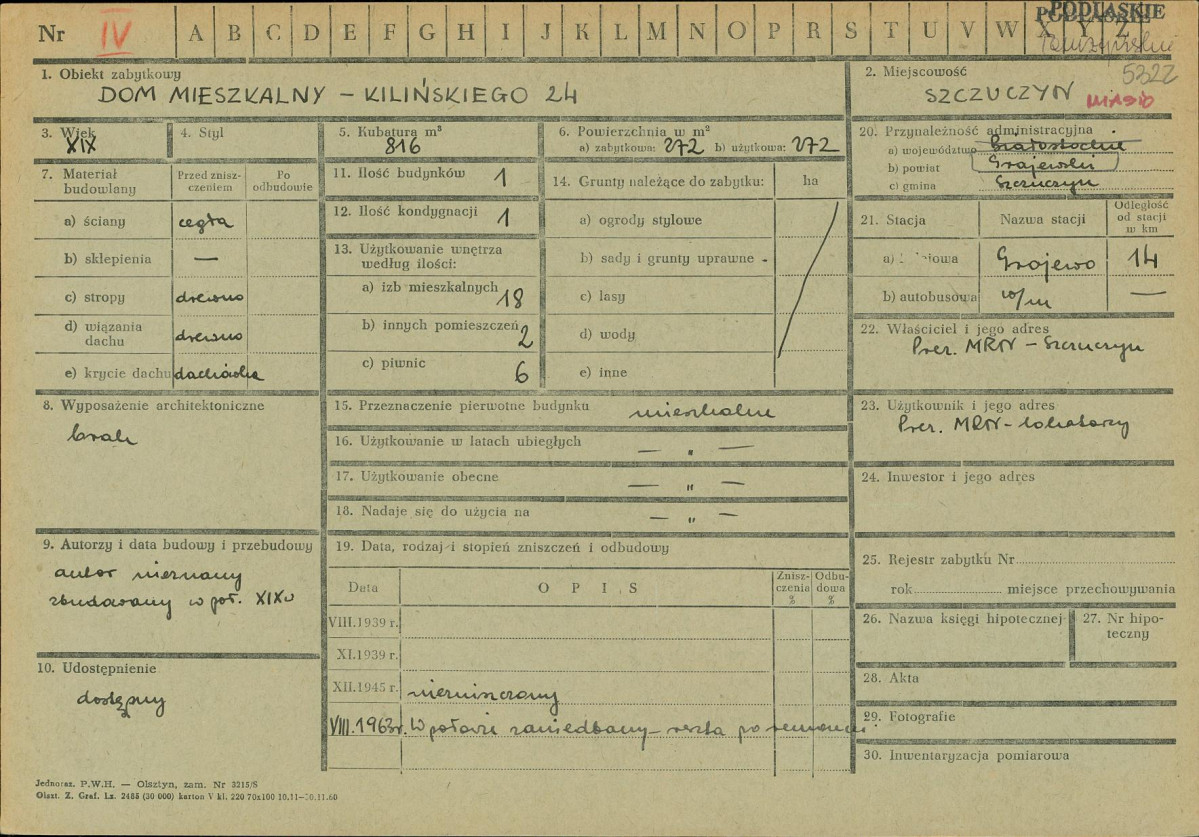 Nr IV A B C D E F G H I J K L M N O P R S T U V W X Y Z
PODLASKIE
5322
1. Obiekt zabytkowy
DOM MIESZKALNY – KILIŃSKIEGO 24
2. Miejscowość
SZCZUCZYN miasto
3. Wiek
XIX
4. Styl
5. Kubatura m³
816
6. Powierzchnia w m²
a) zabytkowa: 272 b) użytkowa: 272
20. Przynależność administracyjna
a) województwo Białostockie
b) powiat Grajewski
c) gmina Szczuczyn
7. Materiał budowlany
Przed zniszczeniem
Po odbudowie
a) ściany cegła
b) sklepienia —
c) stropy drewno
d) wiązania dachu drewno
e) krycie dachu dachówka
11. Ilość budynków 1
12. Ilość kondygnacji 1
13. Użytkowanie wnętrza według ilości:
a) izb mieszkalnych 18
b) innych pomieszczeń 2
c) piwnic 6
14. Grunty należące do zabytku: ha
a) ogrody stylowe
b) sady i grunty uprawne
c) lasy
d) wody
e) inne
21. Stacja
Nazwa stacji
Odległość od stacji w km
a) Grajewo 14
b) autobusowa w/m —
22. Właściciel i jego adres
Prez. MRN – Szczuczyn
8. Wyposażenie architektoniczne
brak
15. Przeznaczenie pierwotne budynku mieszkalne
16. Użytkowanie w latach ubiegłych — „ —
17. Użytkowanie obecne — „ —
18. Nadaje się do użycia na — „ —
23. Użytkownik i jego adres
Prez. MRN – lokatorzy
24. Inwestor i jego adres
9. Autorzy i data budowy i przebudowy
autor nieznany
zbudowany w poł. XIX w
10. Udostępnienie
dostępny
19. Data, rodzaj i stopień zniszczeń i odbudowy
Data OPIS Zniszczenia % Odbudowa %
VIII.1939 r.
XI.1939 r.
XII.1945 r. niezniszczony
VIII.1963 r. W połowie zaniedbany – reszta po remoncie
25. Rejestr zabytku Nr
rok miejsce przechowywania
26. Nazwa księgi hipotecznej
27. Nr hipoteczny
28. Akta
29. Fotografie
30. Inwentaryzacja pomiarowa
Jednoraz. P.W.H. — Olsztyn, zam. Nr 3215/S
Olszt. Z. Graf. Lz. 2485 (30 000) karton V kl. 220 70x100 10.11—30.11.60